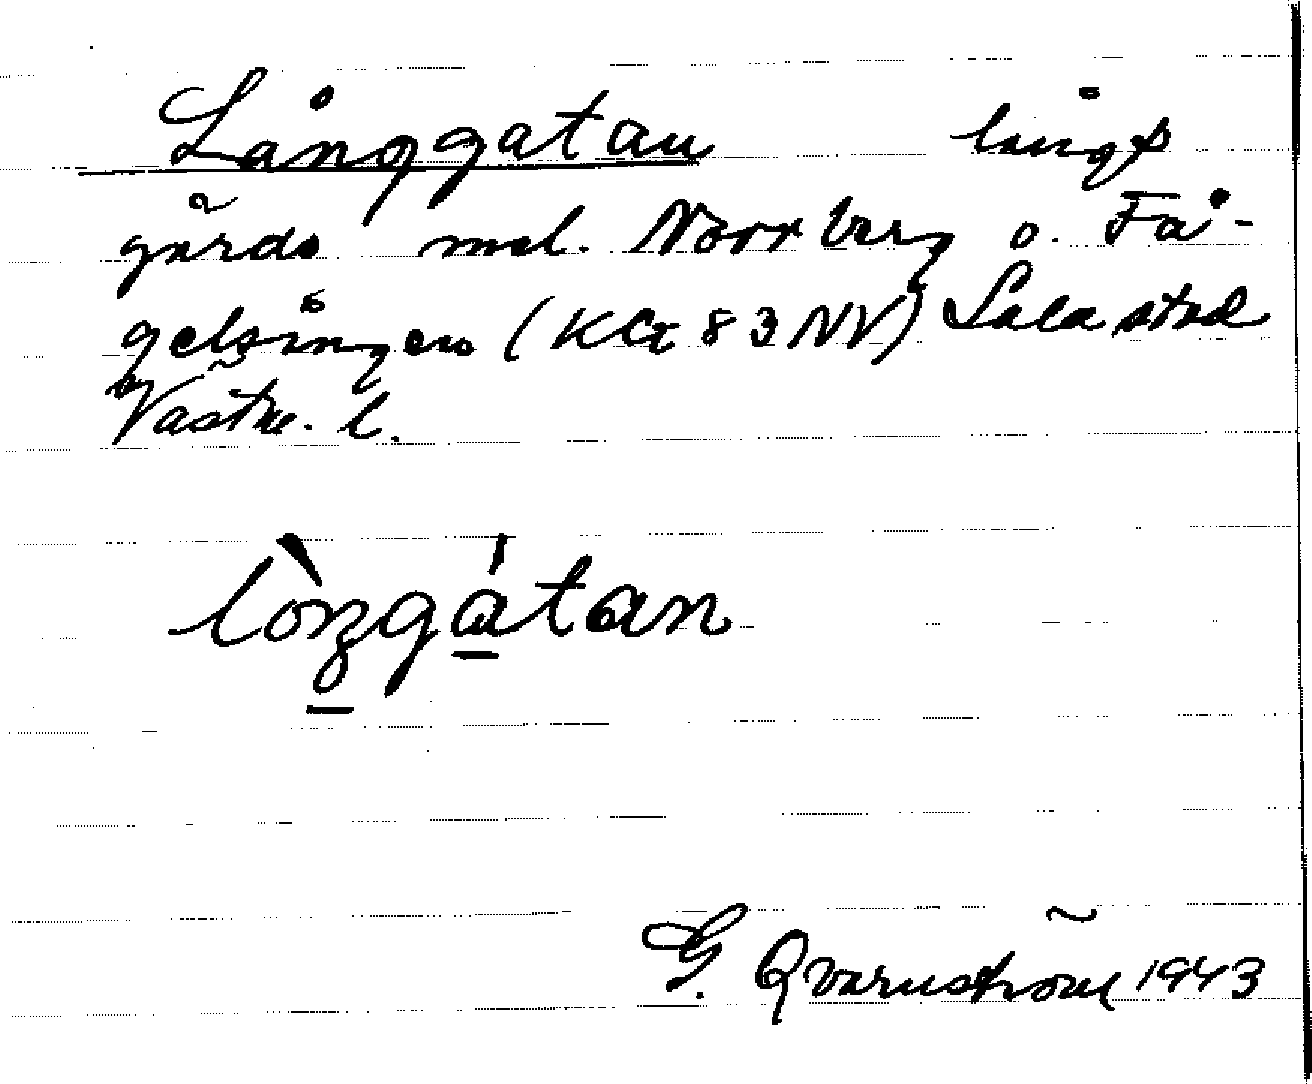 Långgatan längs
gärde mel. Norrberg o. Få-
gelsången (Kbl 83 NV) Sala stad
Västm. l.
lòŋgátan
G. Qvarnström 1943